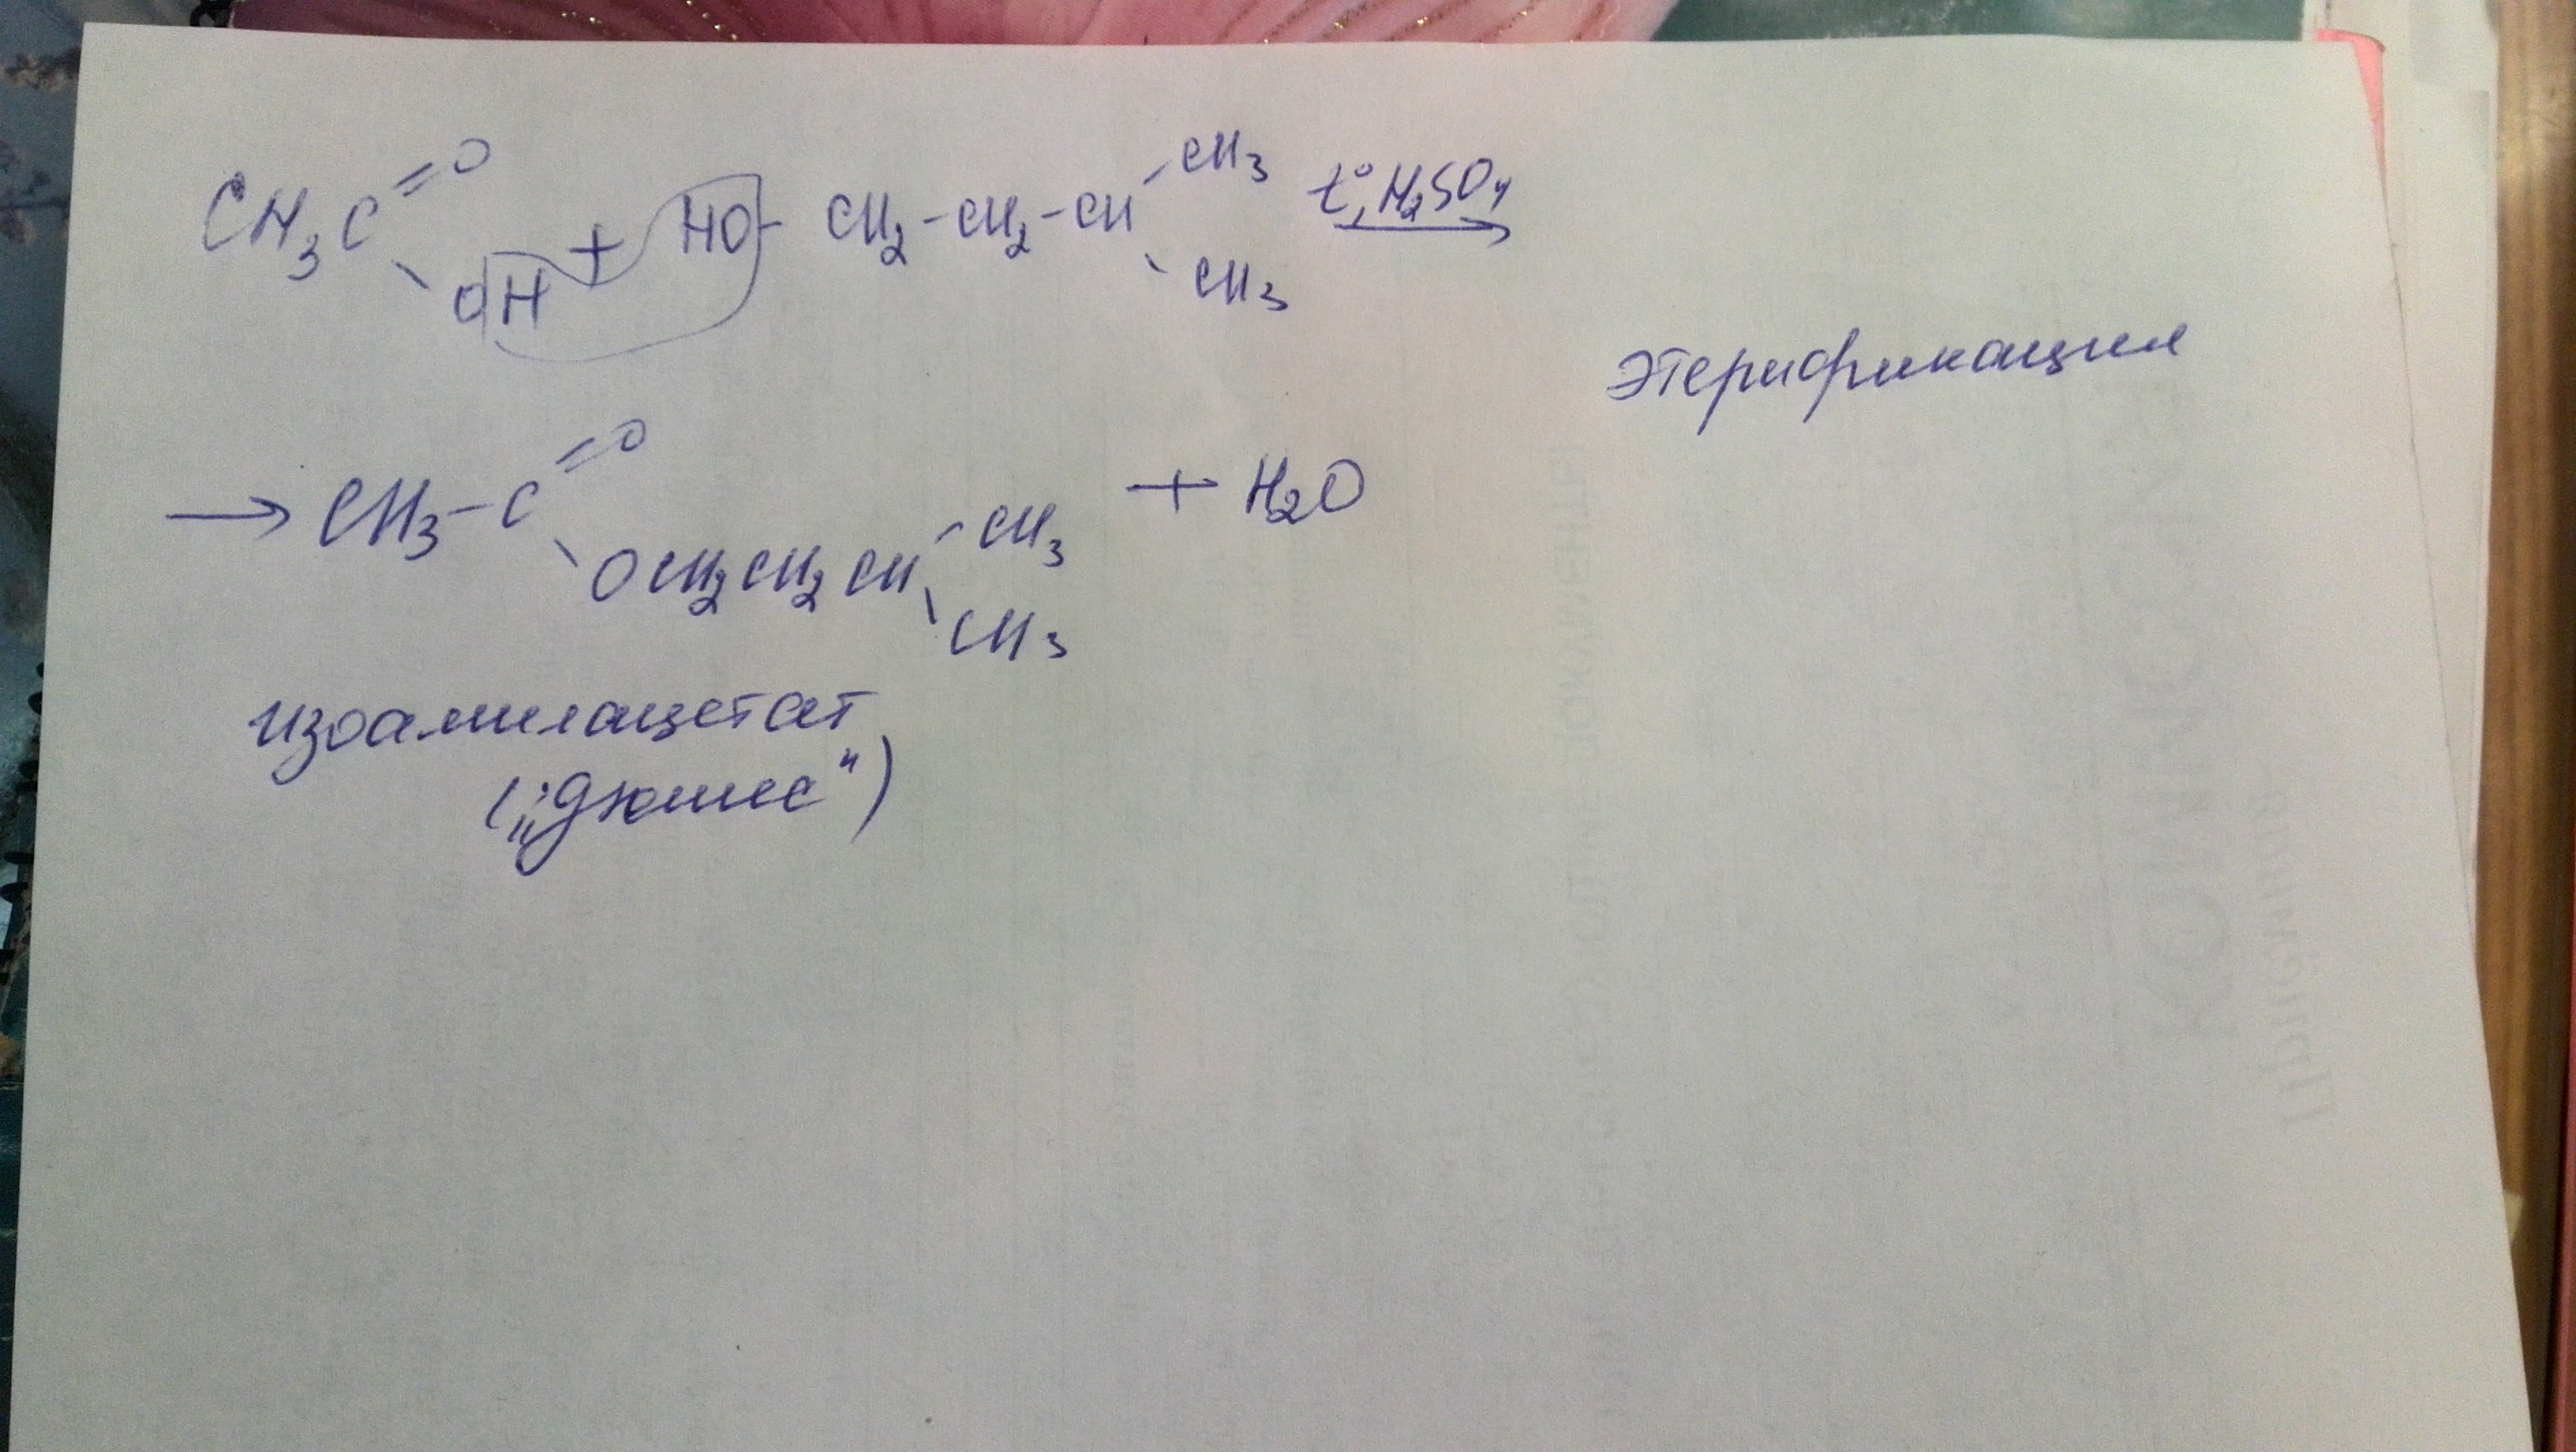 CH₃C=O \ OH + HO-CH₂-CH₂-CH(CH₃)CH₃ t°, H₂SO₄ →
этерификация
→ CH₃-C=O \ OCH₂CH₂CH(CH₃)CH₃ + H₂O
изоамилацетат
(„дюшес“)